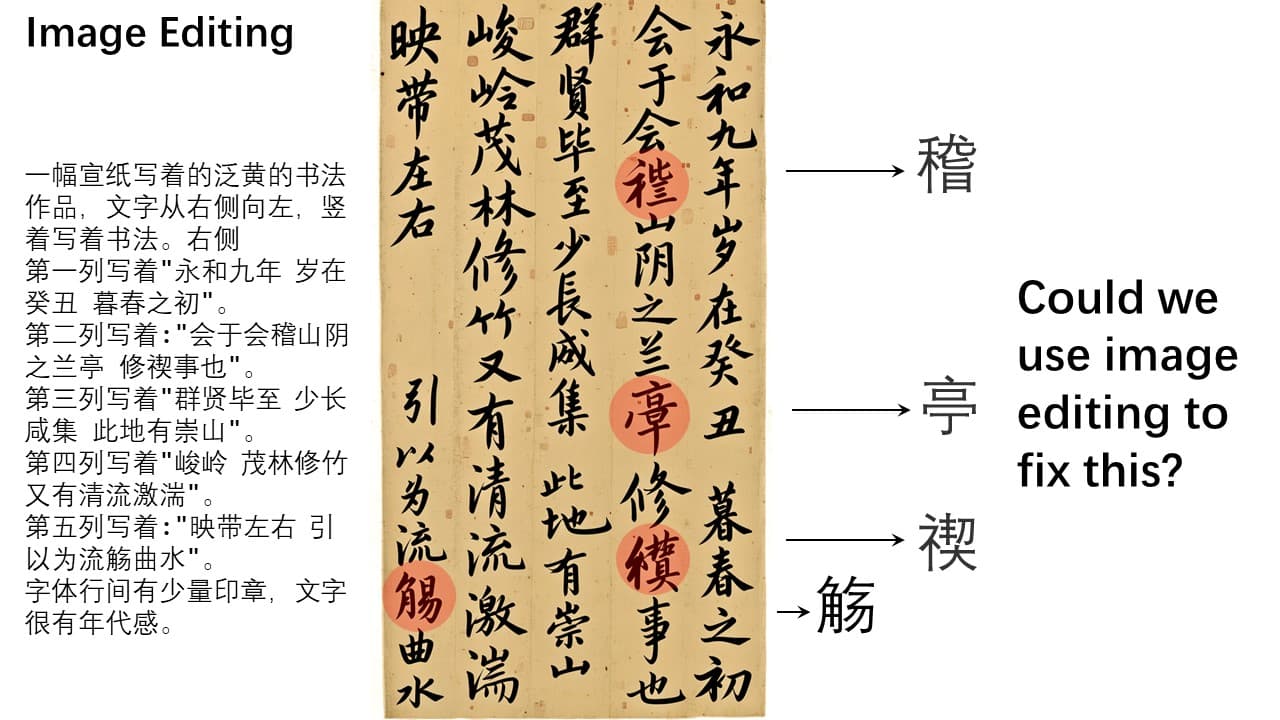 Image Editing
一幅宣纸写着的泛黄的书法
作品，文字从右侧向左，竖
着写着书法。右侧
第一列写着"永和九年 岁在
癸丑 暮春之初"。
第二列写着:"会于会稽山阴
之兰亭 修禊事也"。
第三列写着"群贤毕至 少长
咸集 此地有崇山"。
第四列写着"峻岭 茂林修竹
又有清流激湍"。
第五列写着:"映带左右 引
以为流觞曲水"。
字体行间有少量印章，文字
很有年代感。
永和九年岁在癸丑 暮春之初
会于会山阴之兰修事也
群賢毕至少長咸集 此地有崇山
峻岭茂林修竹又有清流激湍
映带左右 引以为流曲水
稽
亭
禊
觞
Could we
use image
editing to
fix this?